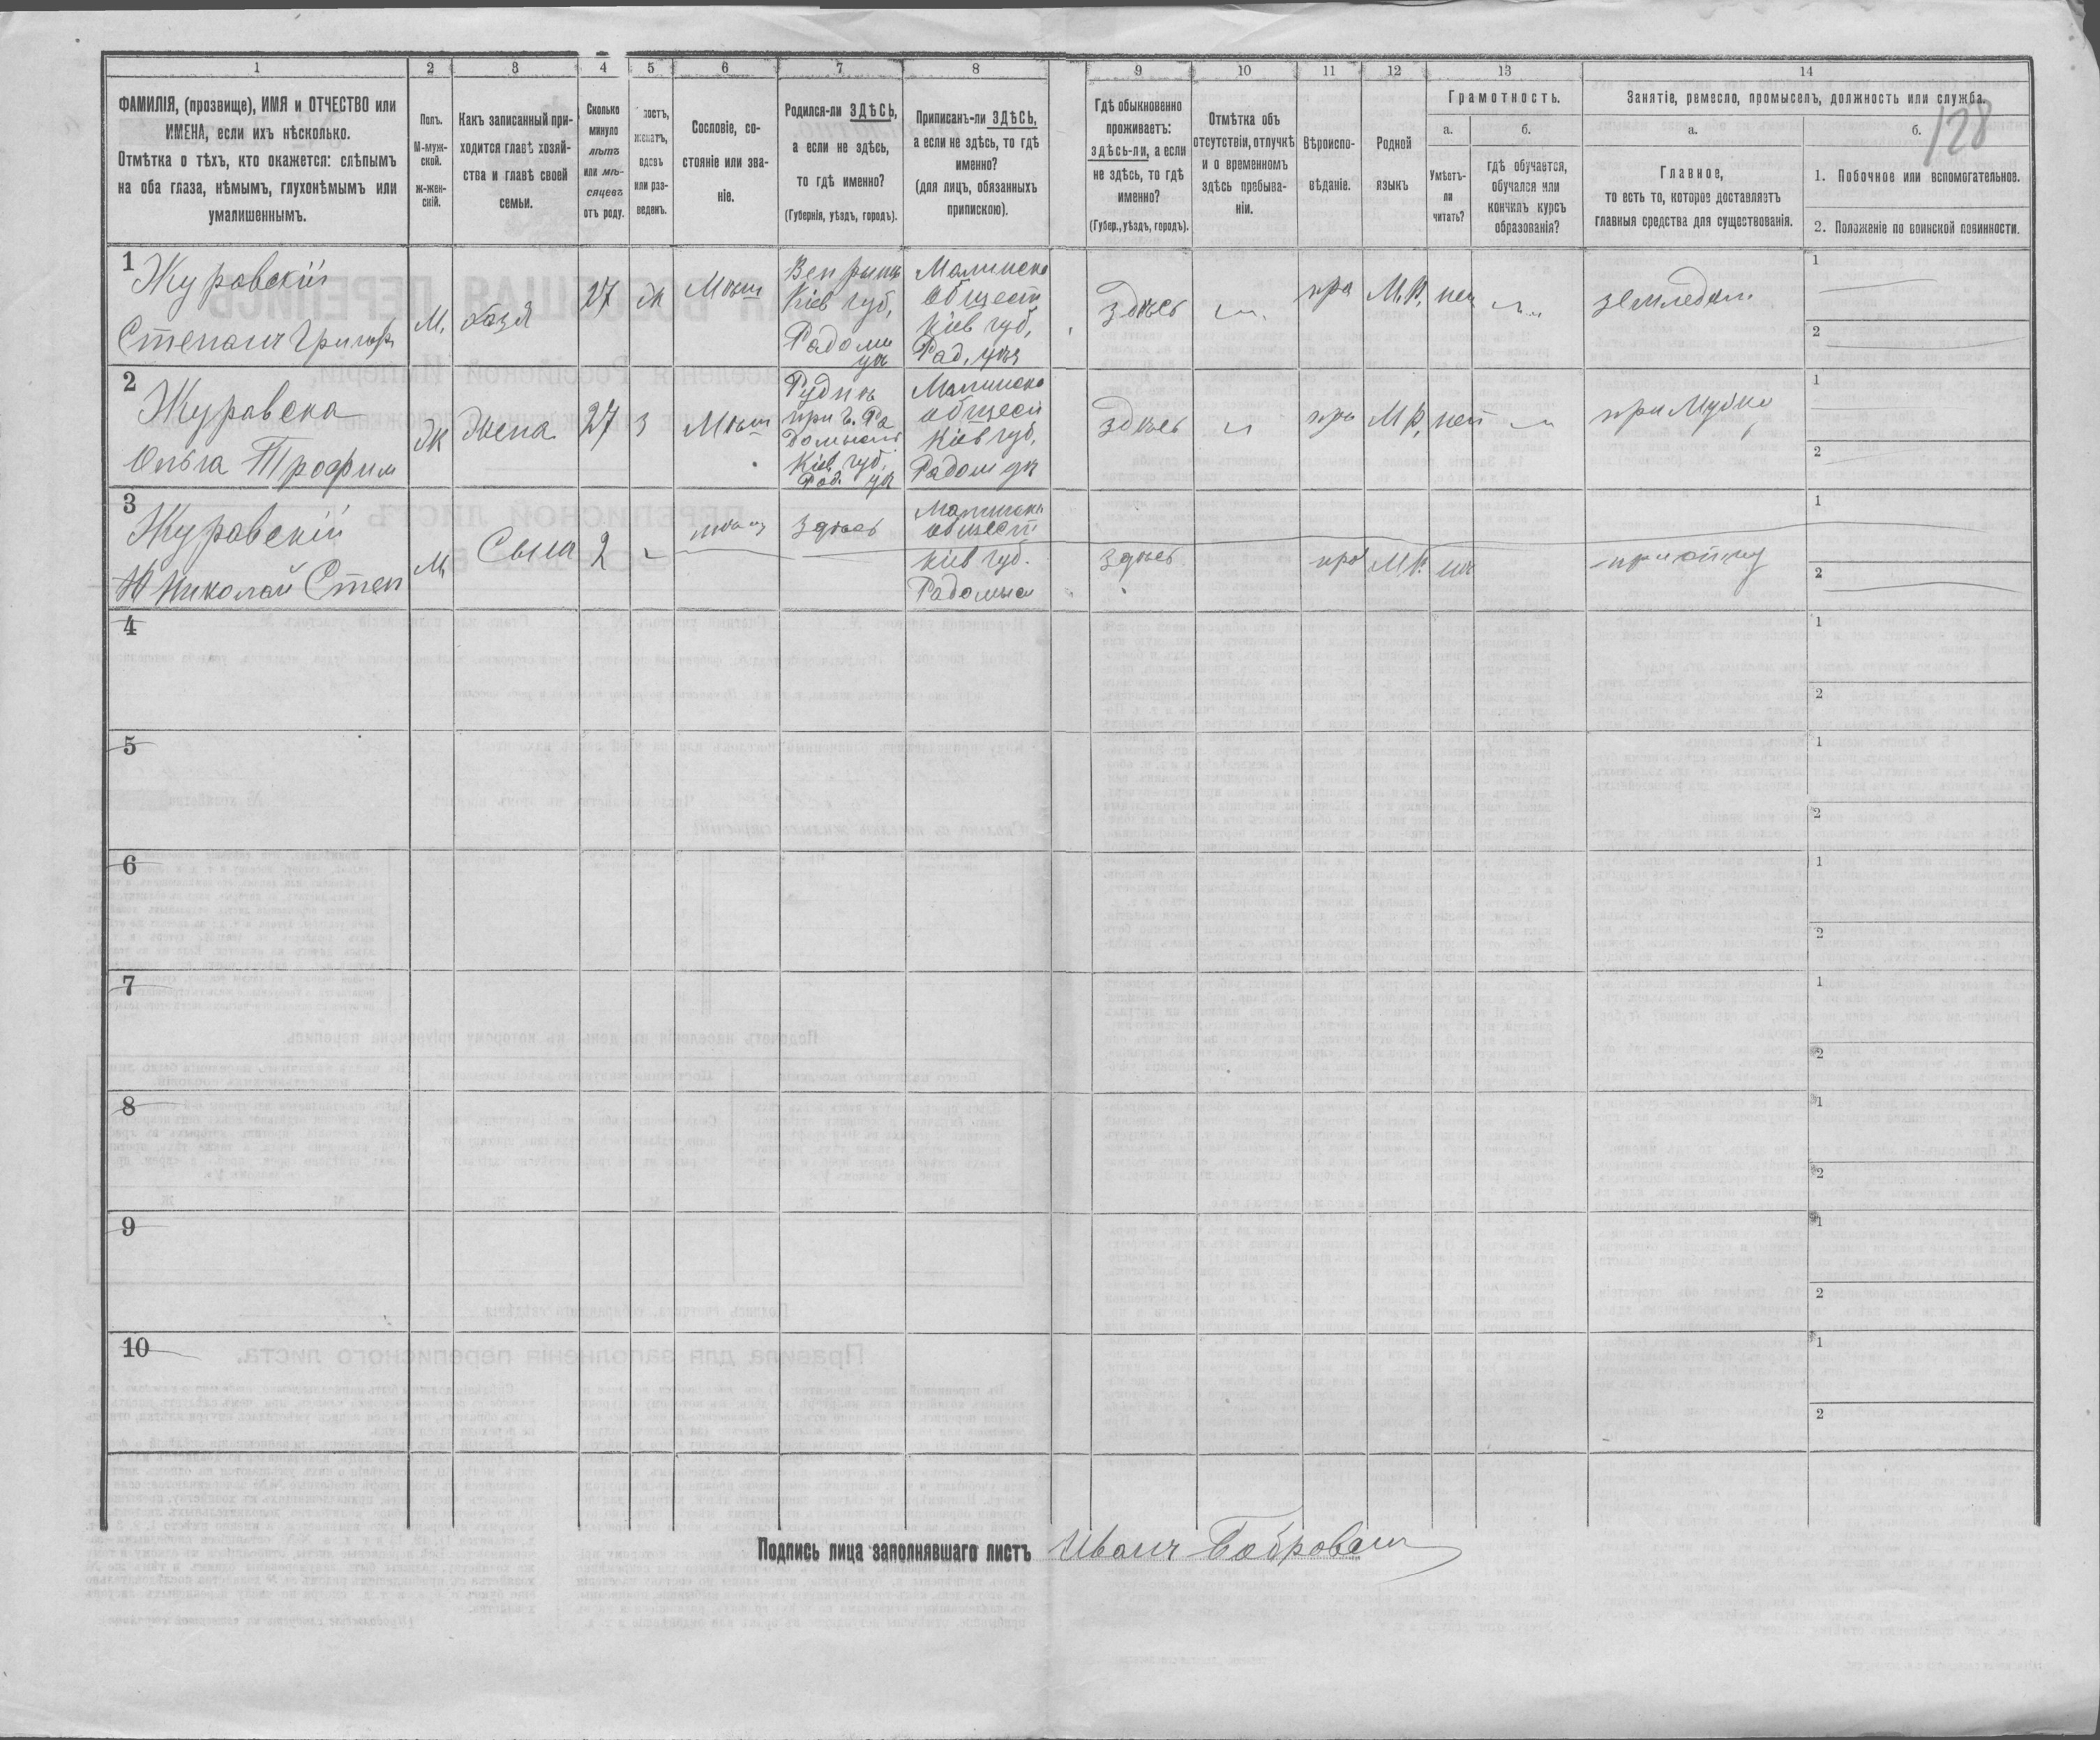 1 2 3 4 5 6 7 8 9 10 11 12 13 14
128
ФАМИЛІЯ, (прозвище), ИМЯ и ОТЧЕСТВО или
ИМЕНА, если ихъ нѣсколько.
Отмѣтка о тѣхъ, кто окажется: слѣпымъ
на оба глаза, нѣмымъ, глухонѣмымъ или
умалишеннымъ.
Полъ.
М-муж-
ской.
ж-жен-
скій.
Какъ записанный при-
ходится главѣ хозяй-
ства и главѣ своей
семьи.
Сколько
минуло
лѣтъ
или мѣ-
сяцевъ
отъ роду.
лостъ,
женатъ,
вдовъ
или раз-
веденъ.
Сословіе, со-
стояніе или зва-
ніе.
Родился-ли ЗДѢСЬ,
а если не здѣсь,
то гдѣ именно?
(Губернія, уѣздъ, городъ).
Приписанъ-ли ЗДѢСЬ,
а если не здѣсь, то гдѣ
именно?
(для лицъ, обязанныхъ
припискою).
Гдѣ обыкновенно
проживаетъ:
здѣсь-ли, а если
не здѣсь, то гдѣ
именно?
(Губер., уѣздъ, городъ).
Отмѣтка объ
отсутствіи, отлучкѣ
и о временномъ
здѣсь пребыва-
ніи.
Вѣроиспо-
вѣданіе.
Родной
языкъ
Грамотность.
а.
Умѣетъ-
ли
читать?
б.
гдѣ обучается,
обучался или
кончилъ курсъ
образованія?
Занятіе, ремесло, промыселъ, должность или служба.
а.
Главное,
то есть то, которое доставляетъ
главныя средства для существованія.
б.
1. Побочное или вспомогательное.
2. Положеніе по воинской повинности.
1
Журовскій
Степанъ Григор
М.
хозя
27
ж
Мѣщ
Кіев губ,
Радомы
уѣ
Малинско
общест
Кіев губ,
Рад. уѣз
здѣсь
пра
М.Р.
нет
земледел
1
2
2
Журовска
Ольга Трофим
Ж
жена
27
з
Мѣщ
Рудня
при г. Ра
домысл
Кіев губ,
Рад. уѣ
Малинско
общест
Кіев губ,
Радом уѣ
здѣсь
пра
М.Р.
нет
при мужѣ
1
2
3
Журовскій
Николай Степ
М
Сынъ
2
здѣсь
Малинско
общест
Кіев губ.
Радомысл
здѣсь
пра
М.Р.
при отцу
1
2
4
1
2
5
1
2
6
1
2
7
1
2
8
1
2
9
1
2
10
1
2
Подпись лица заполнявшаго листъ Иванъ